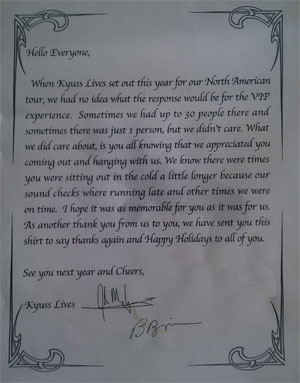 Hello Everyone,
When Kyuss Lives set out this year for our North American
tour, we had no idea what the response would be for the VIP
experience. Sometimes we had up to 30 people there and
sometimes there was just 1 person, but we didn't care. What
we did care about, is you all knowing that we appreciated you
coming out and hanging with us. We know there were times
you were sitting out in the cold a little longer because our
sound checks where running late and other times we were
on time. I hope it was as memorable for you as it was for us.
As another thank you from us to you, we have sent you this
shirt to say thanks again and Happy Holidays to all of you.
See you next year and Cheers,
Kyuss Lives